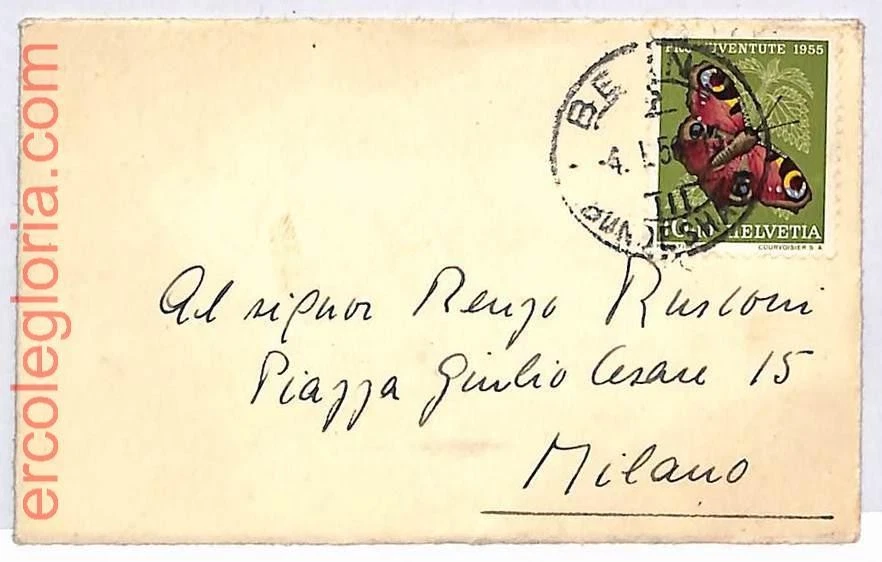 ercolegloria.com
PRO JUVENTUTE 1955
BERN
-4. I. 56
BUNDESHAUS
HELVETIA
COURVOISIER S A
Al signor Renzo Rusconi
Piazza Giulio Cesare 15
Milano